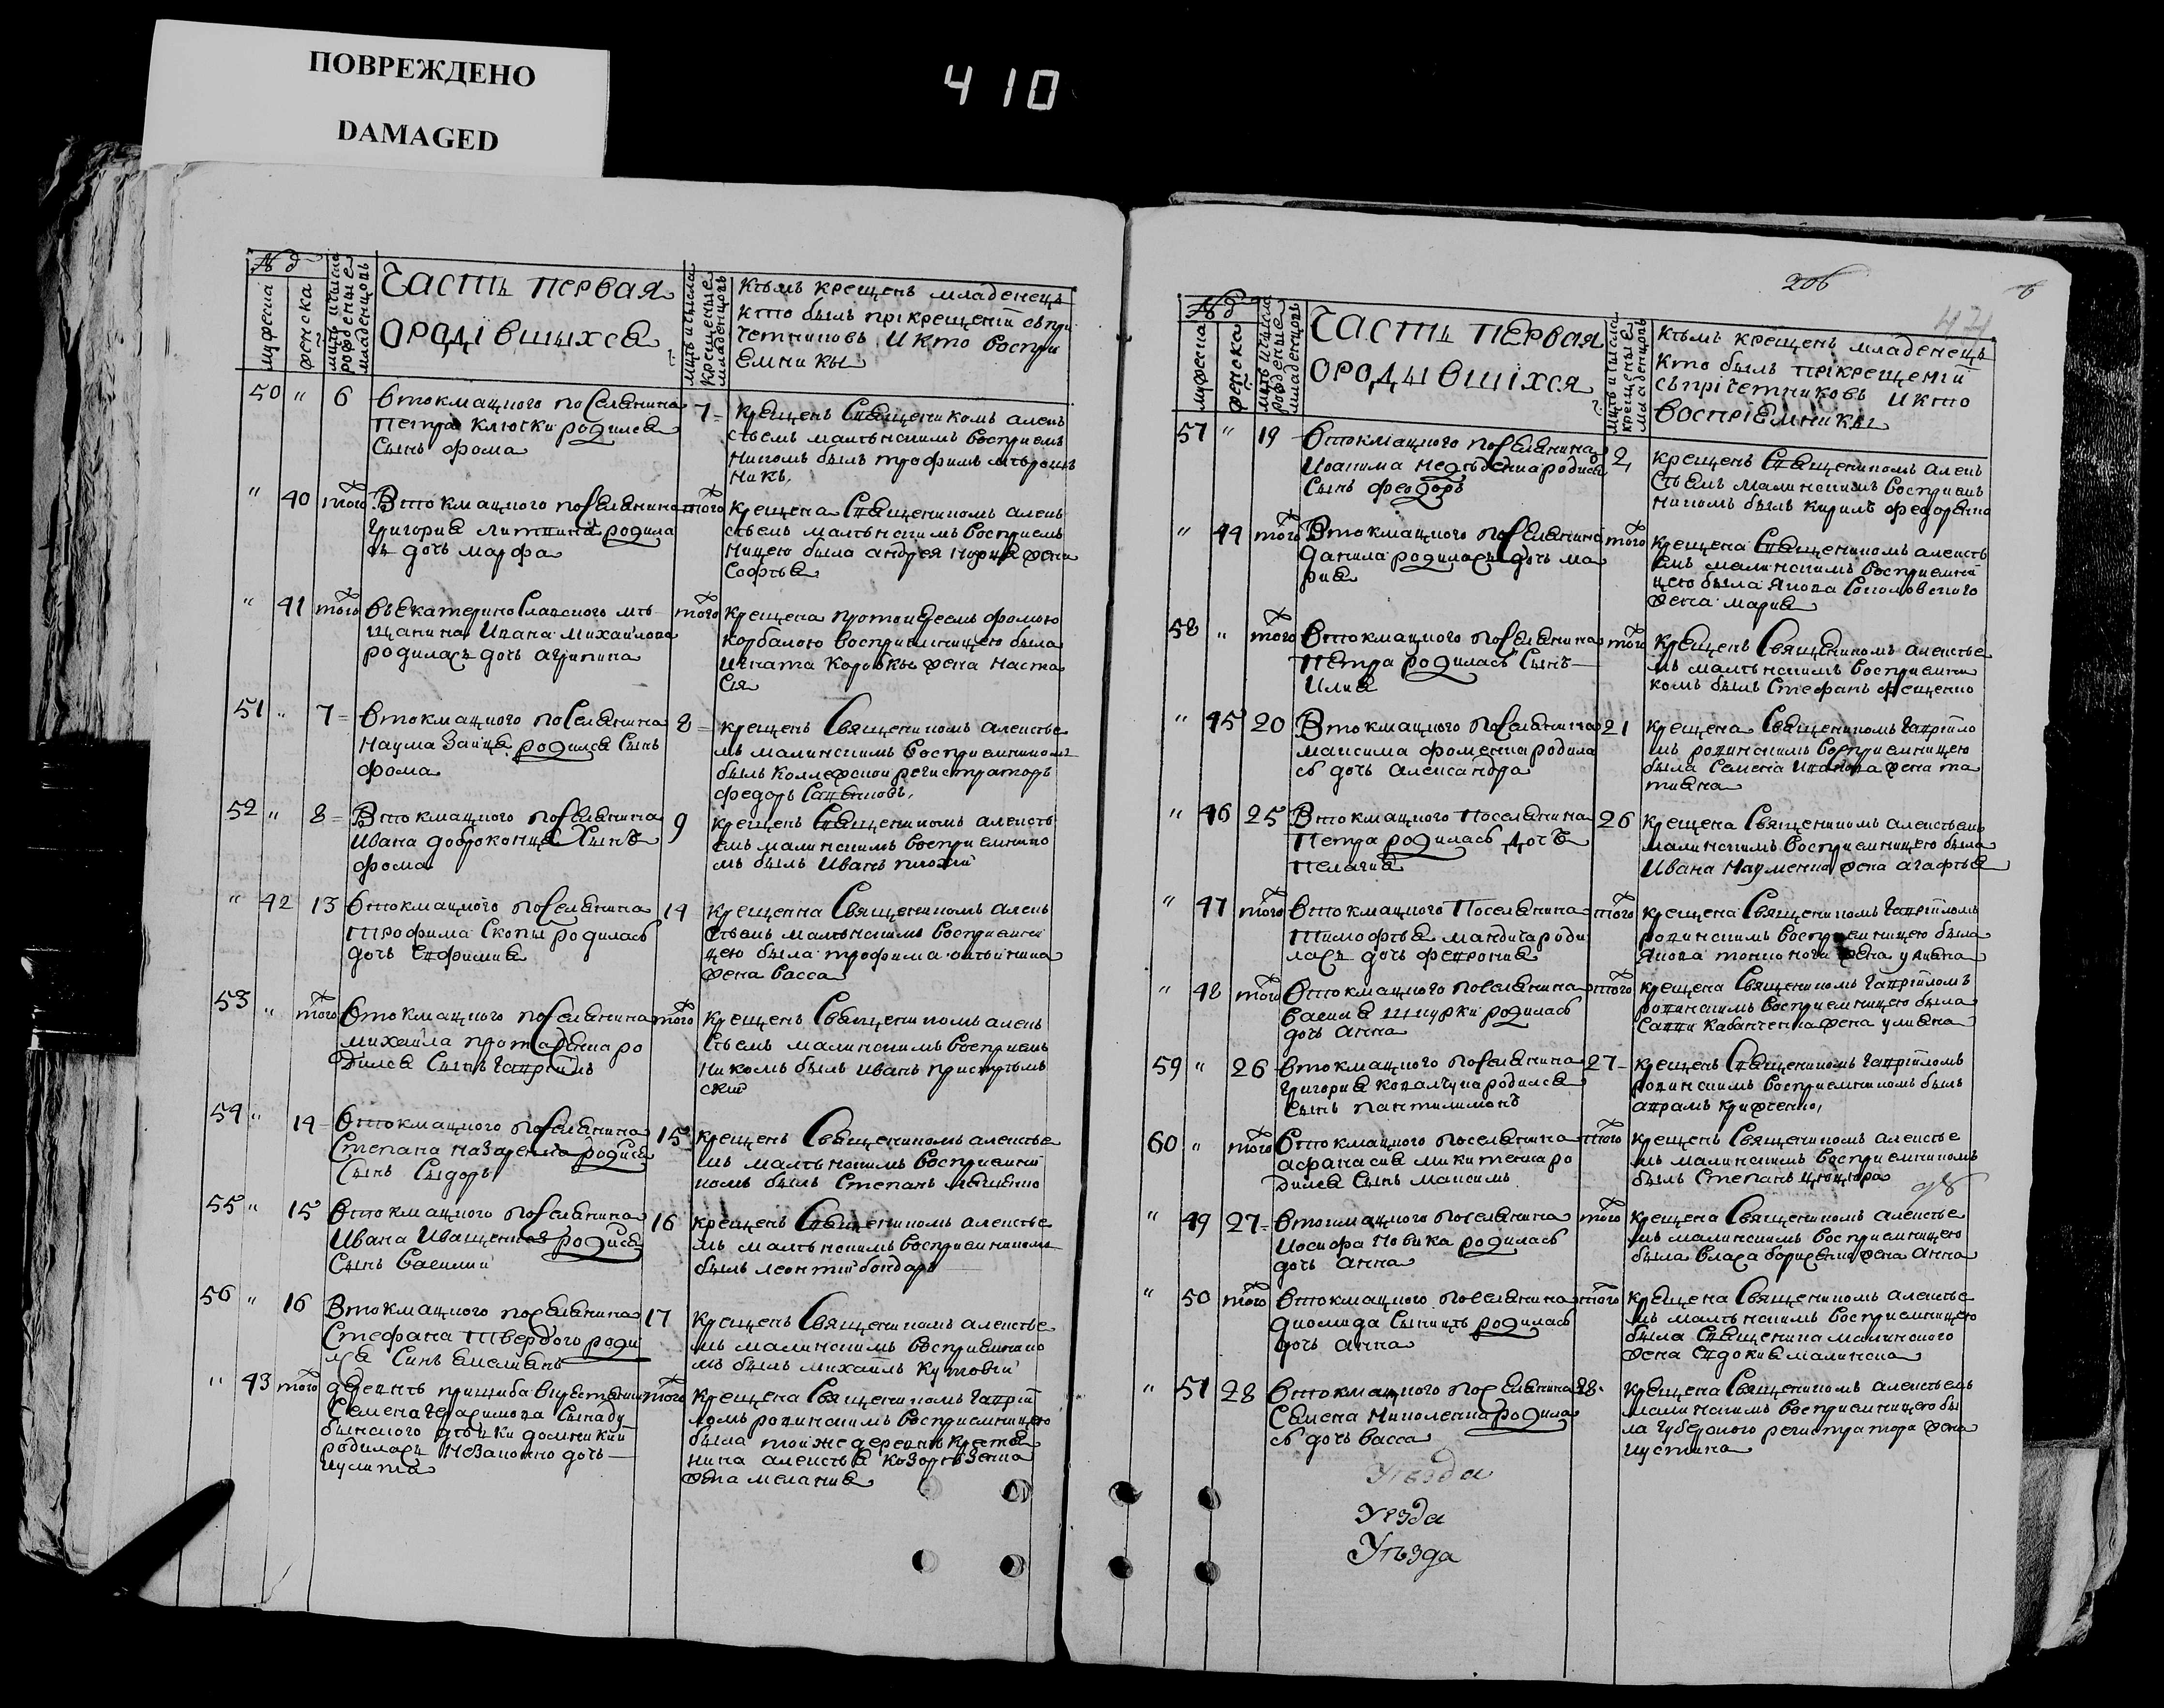 ПОВРЕЖДЕНО
DAMAGED
410
№ д
мужеска
женска
Часть первая
ородiвшихся
Кѣмъ крещенъ младенецъ
кто былъ прiкрещенiй съпри
четниковъ икто воспри
емники
50 " 6
Втокмацкого поселянина
Петра Клюски родился
сынъ фома
7
крещенъ священикомъ алекъ
сѣемъ малѣнскимъ восприемъ
никомъ былъ трофимъ
" 40 того
Втокмацкого поселянина
григория родила
сь дочь марфа
того
крещена священикомъ алекъ
сѣемъ малѣнскимъ восприемъ
ницею была андрея жена
софья
" 41 того
въекатеринославского мѣ
щанина ивана михайлова
родилась дочь агрипина
того
крещена протоиереемъ фомою
корбалою восприемницею была
игната коробки жена наста
сия
51 " 7
втокмацкого поселянина
наума зайца родился сынъ
фома
8
крещенъ священикомъ алексѣе
мъ малинскимъ восприемникомъ
былъ коллежской регистраторъ
федоръ
52 " 8
Втокмацкого поселянина
ивана сынъ
фома
9
крещенъ священикомъ алексѣ
емъ малинскимъ восприемнико
мъ былъ иванъ
" 42 13
Втокмацкого поселянина
трофима скопы родилась
дочь евфимия
14
крещенна священикомъ алекъ
сѣемъ малѣнскимъ восприемни
цею была трофима
жена васса
53 " того
Втокмацкого поселянина
михаила ро
дился сынъ гаврiилъ
того
крещенъ священикомъ алекъ
сѣемъ малинскимъ восприемъ
никомъ былъ иванъ
ский
54 " 14
Втокмацкого поселянина
степана назаренка родися
сынъ сидоръ
15
крещенъ священикомъ алексѣе
мъ малѣнскимъ восприемни
комъ былъ степанъ
55 " 15
Втокмацкого поселянина
ивана иващенка родися
сынъ василий
16
крещенъ священикомъ алексѣе
мъ малѣнскимъ восприемникомъ
былъ леонтiй бондарь
56 " 16
Втокмацкого поселянина
стефана твердого роди
лся синъ емелиянъ
17
крещенъ священикомъ алексѣе
мъ малинскимъ восприемнико
мъ былъ михаилъ кутовий
" 43 того
деревнѣ пришиба
семена герасимова
родилась незаконно дочь
иулита
того
крещена священикомъ гаврiи
ломъ ровинскимъ восприемницею
была тойже деревнѣ крестя
нина алексѣя
жена мелания
206
6
474
№ д
мужеска
женска
Часть первая
ородывшiхся
Кѣмъ крещенъ младенецъ
кто былъ прiкрещенiй
съпрiчетниковъ икто
воспрiемники
57 " 19
Втокмацкого поселянина
иоакима родися
сынъ феодоръ
2
крещенъ священикомъ алекъ
сѣемъ малинскимъ восприемъ
никомъ былъ кирилъ федоренко
" 44 того
Втокмацкого поселянина
данила родиласъ дочь ма
рия
того
крещена священикомъ алексѣ
емъ малинскимъ восприемни
цею была якова
жена мария
58 " того
Втокмацкого поселянина
Петра родилась сынъ
илия
того
крещенъ священикомъ алексѣе
мъ малѣнскимъ восприемни
комъ былъ стефанъ
" 45 20
Втокмацкого поселянина
максима фоменка родила
сь дочь александра
21
крещена священикомъ гаврiило
мъ ровинскимъ восприемницею
была семена иванова жена та
тияна
" 46 25
Втокмацкого поселянина
Петра родилась дочь
пелагия
26
крещена священикомъ алексѣемъ
малинскимъ восприемницею была
ивана науменка жена агафья
" 47 того
Втокмацкого Поселянина
тимофѣя роди
лась дочь феврония
того
крещена священикомъ гаврiиломъ
ровинскимъ восприемницею была
якова жена улияна
" 48 того
Втокмацкого поселянина
василя шкурки родилась
дочь анна
того
крещена священикомъ гаврiиломъ
ровинскимъ восприемницею была
саввы кабанченка жена улияна
59 " 26
Втокмацкого поселянина
григория ковалчука родился
сынъ пантилимонъ
27
крещенъ священикомъ гаврiиломъ
ровинскимъ восприемникомъ былъ
аврамъ
60 " того
Втокмацкого поселянина
афанасия микитенка ро
дился сынъ максимъ
того
крещенъ священикомъ алексѣе
мъ малинскимъ восприемникомъ
былъ степанъ цюцюра
" 49 27
Втокмацкого поселянина
иосифа новика родилась
дочь анна
того
крещена священикомъ алексѣе
мъ малинскимъ восприемницею
была власа борисенка жена анна
" 50 того
Втокмацкого поселянина
диомида родилась
дочь анна
того
крещена священикомъ алексѣе
мъ малѣнскимъ восприемницею
была священика малинского
жена евдокия малинска
" 51 28
Втокмацкого поселянина
семена николенка родила
сь дочь васса
28
крещена священикомъ алексѣемъ
малинскимъ восприемницею бы
ла губернского регистратора жена
иустина
Уѣзда
Уезда
Уѣзда